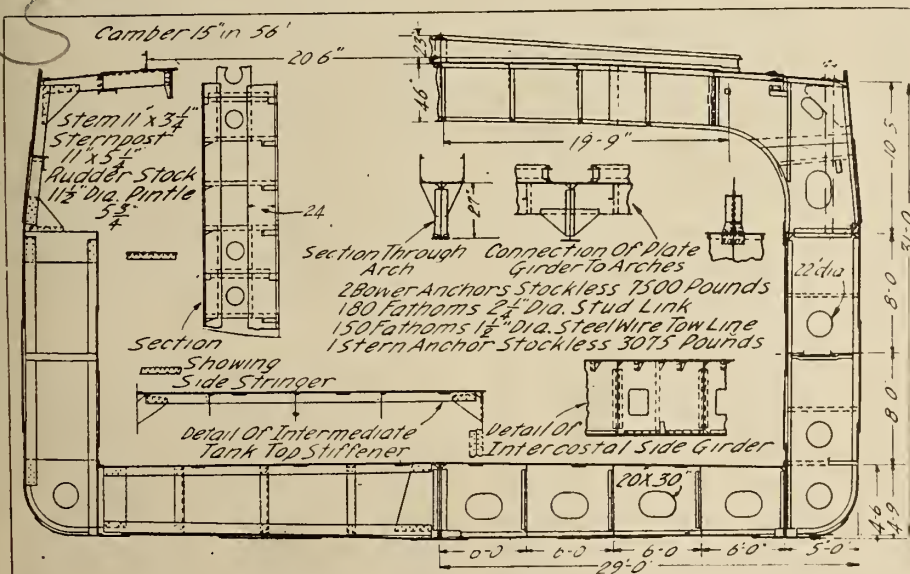 Camber 15" in 56'
20'6"
23"
46"
Stem 11" x 3 1/4"
Sternpost
11" x 5 1/4"
Rudder Stock
11 1/2" Dia. Pintle
5 3/4
24
19'-9"
27"
Section Through
Arch
Connection Of Plate
Girder To Arches
2 Bower Anchors Stockless 7500 Pounds
180 Fathoms 2 1/4" Dia. Stud Link
150 Fathoms 1 1/4" Dia. Steel Wire Tow Line
1 Stern Anchor Stockless 3075 Pounds
Section
Showing
Side Stringer
Detail Of Intermediate
Tank Top Stiffener
Detail Of
Intercostal Side Girder
20 X 30"
22" dia
10-5
8-0
8-0
31-0
4-6
4-9
6-0
6-0
6-0
6-0
5-0
29-0